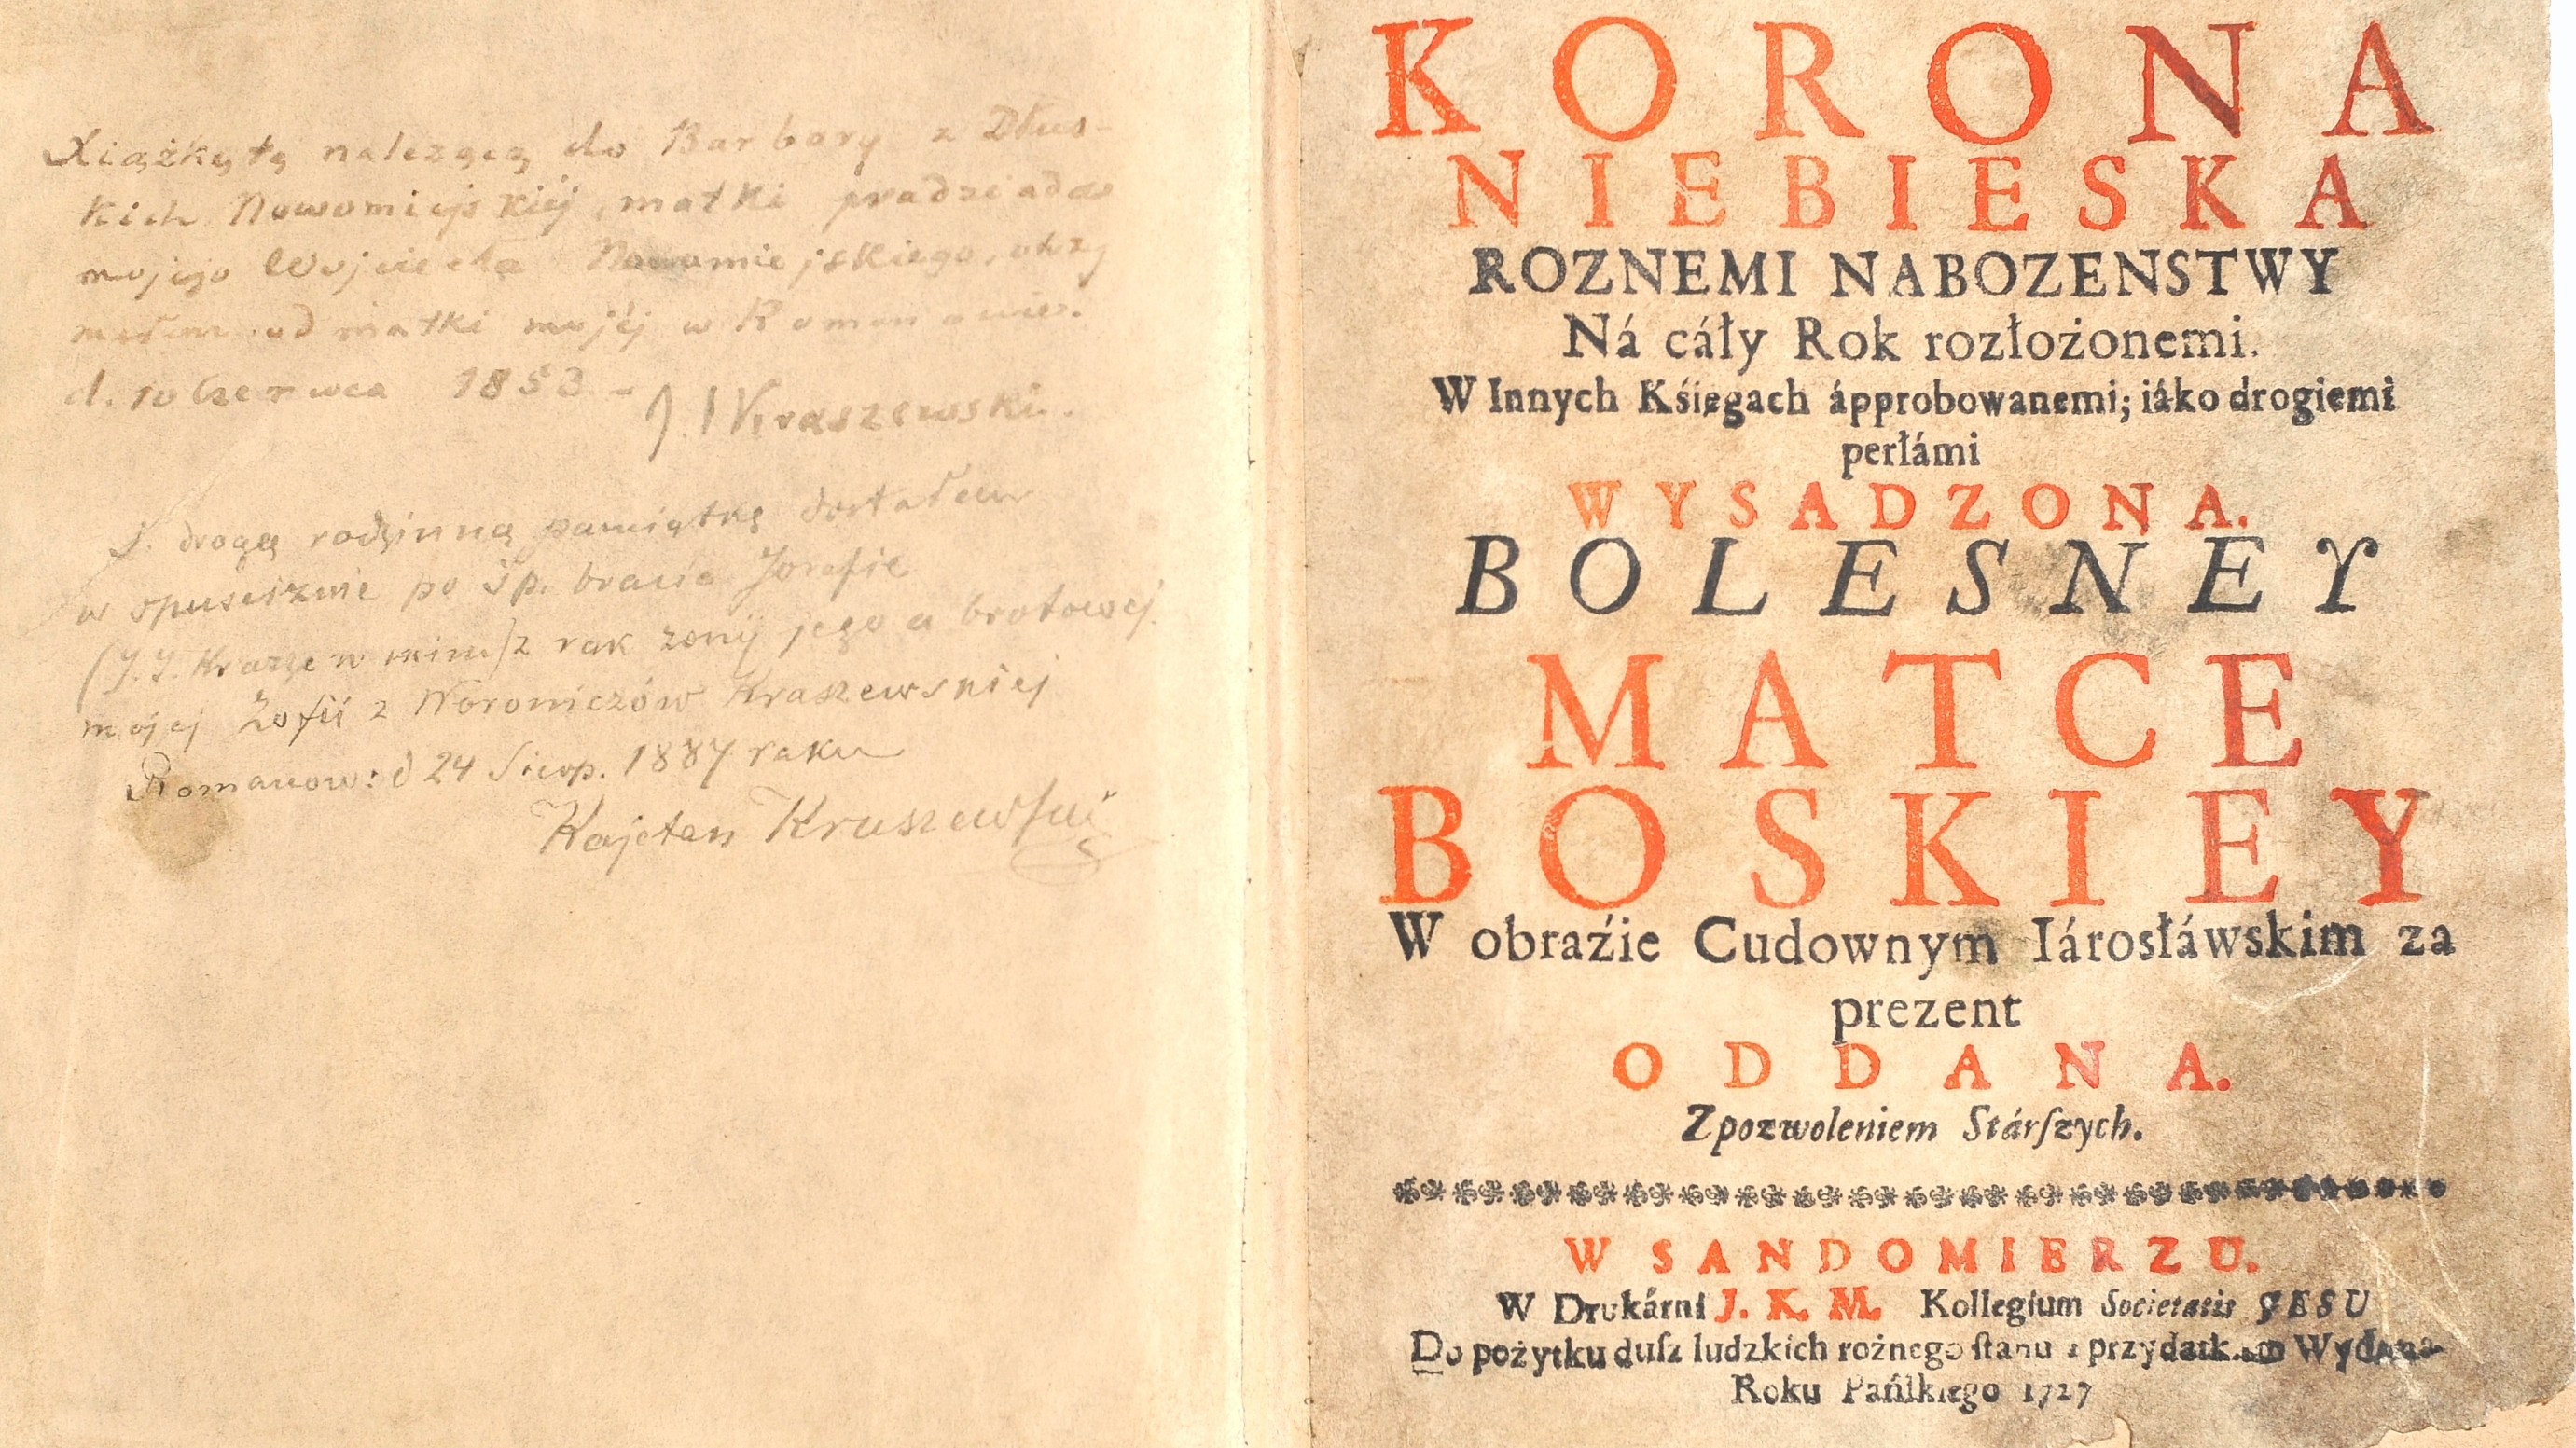 Xiążkę tę należącą do Barbary z Dłus-
kich Nowomiejskiéj, matki pradziada
mojego Wojciecha Nowomiejskiego, otrzy
małem od matki mojéj w Romanowie.
d. 10 Czerwca 1853 - J. I Kraszewski.
drogą rodzinną pamiątkę dostałem
w spuściznie po śp. bracie Józefie
(J. I. Kraszewskim) z rąk żony jego a bratowej
mojej Zofii z Woroniczów Kraszewskiej
Romanow: d 24 Sierp. 1887 roku
Kajetan Kraszewski
KORONA
NIEBIESKA
ROZNEMI NABOZENSTWY
Ná cáły Rok rozłożonemi.
W Innych Kśięgach ápprobowanemi; iáko drogiemi
perłámi
WYSADZONA.
BOLESNEY
MATCE
BOSKIEY
W obraźie Cudownym Iárosłáwskim za
prezent
ODDANA.
Z pozwoleniem Stárſzych.
W SANDOMIERZU.
W Drukárni J. K. M. Kollegium Societatis JESU
Do pożytku duſz ludzkich rożnego ſtanu z przydatkiem Wydana
Roku Pańſkiego 1727